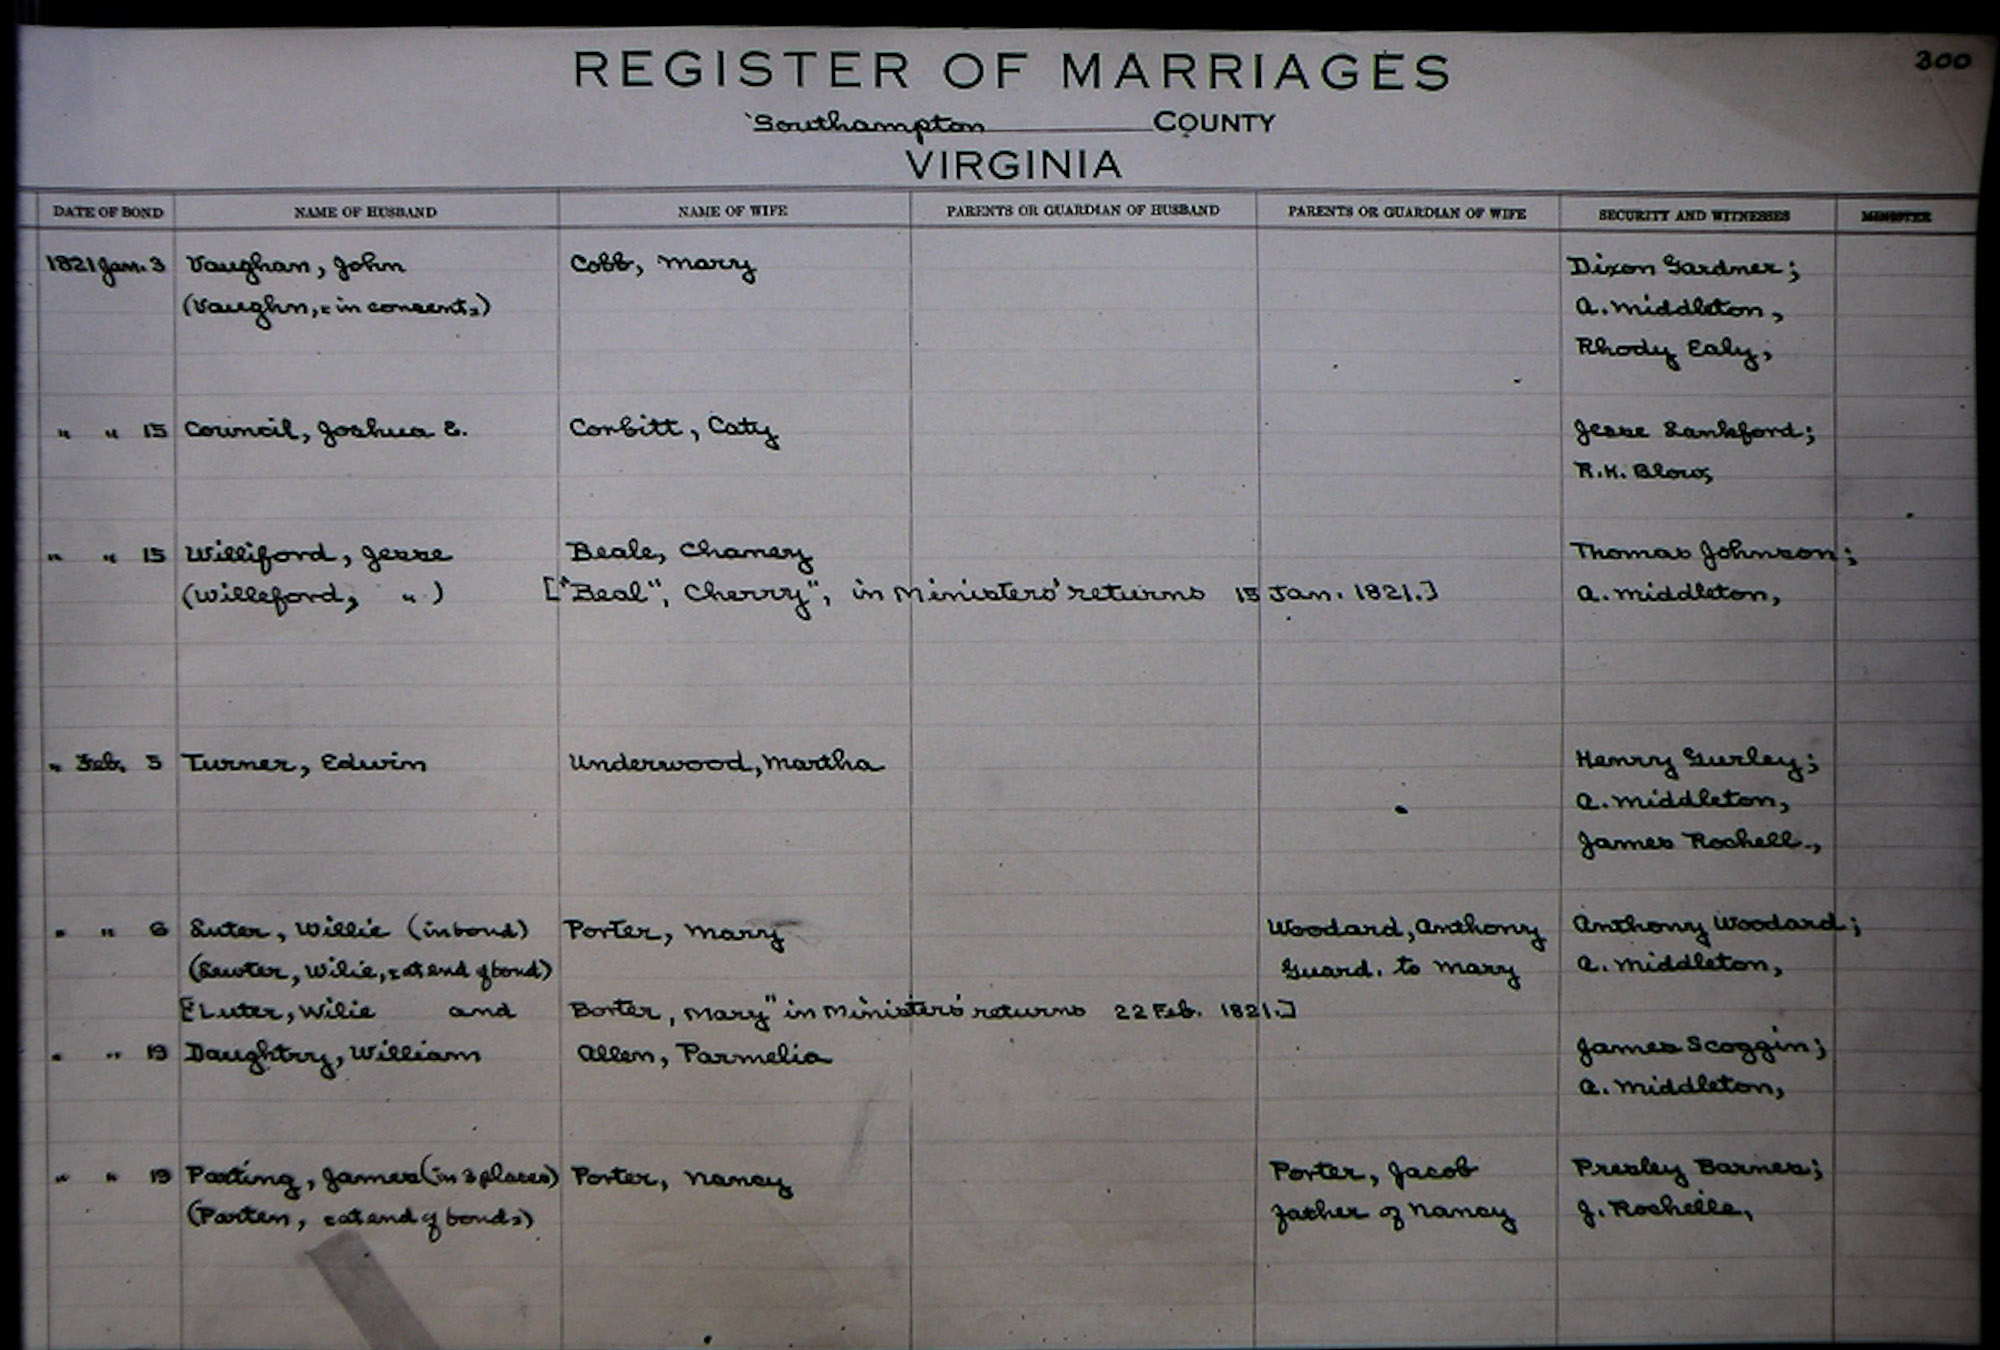 300
REGISTER OF MARRIAGES
Southampton COUNTY
VIRGINIA
DATE OF BOND NAME OF HUSBAND NAME OF WIFE PARENTS OR GUARDIAN OF HUSBAND PARENTS OR GUARDIAN OF WIFE SECURITY AND WITNESSES MINISTER
1821 Jan. 3 Vaughan, John Cobb, Mary Dixon Gardner;
(Vaughn, in consent) A. Middleton,
Rhody Ealy,
" " 15 Council, Joshua E. Corbitt, Caty Jesse Lankford;
R.H. Blow,
" " 15 Williford, Jesse Beale, Chaney Thomas Johnson;
(Willeford, " ) ["Beal", Cherry", in Ministers' returns 15 Jan. 1821.] A. Middleton,
" Feb. 5 Turner, Edwin Underwood, Martha Henry Gurley;
A. Middleton,
James Rochell.,
" " 6 Luter, Willie (in bond) Porter, Mary Woodard, Anthony Anthony Woodard;
Wilie, at end of bond) Guard. to Mary A. Middleton,
[Luter, Wilie and Borter, Mary" in Ministers' returns 22 Feb. 1821.]
" " 19 Daughtry, William Allen, Parmelia James Scoggin;
A. Middleton,
" " 19 James (in 3 places) Porter, Nancy Porter, Jacob Presley Barnes;
(Parten, at end of bond) father of Nancy J. Rochelle,